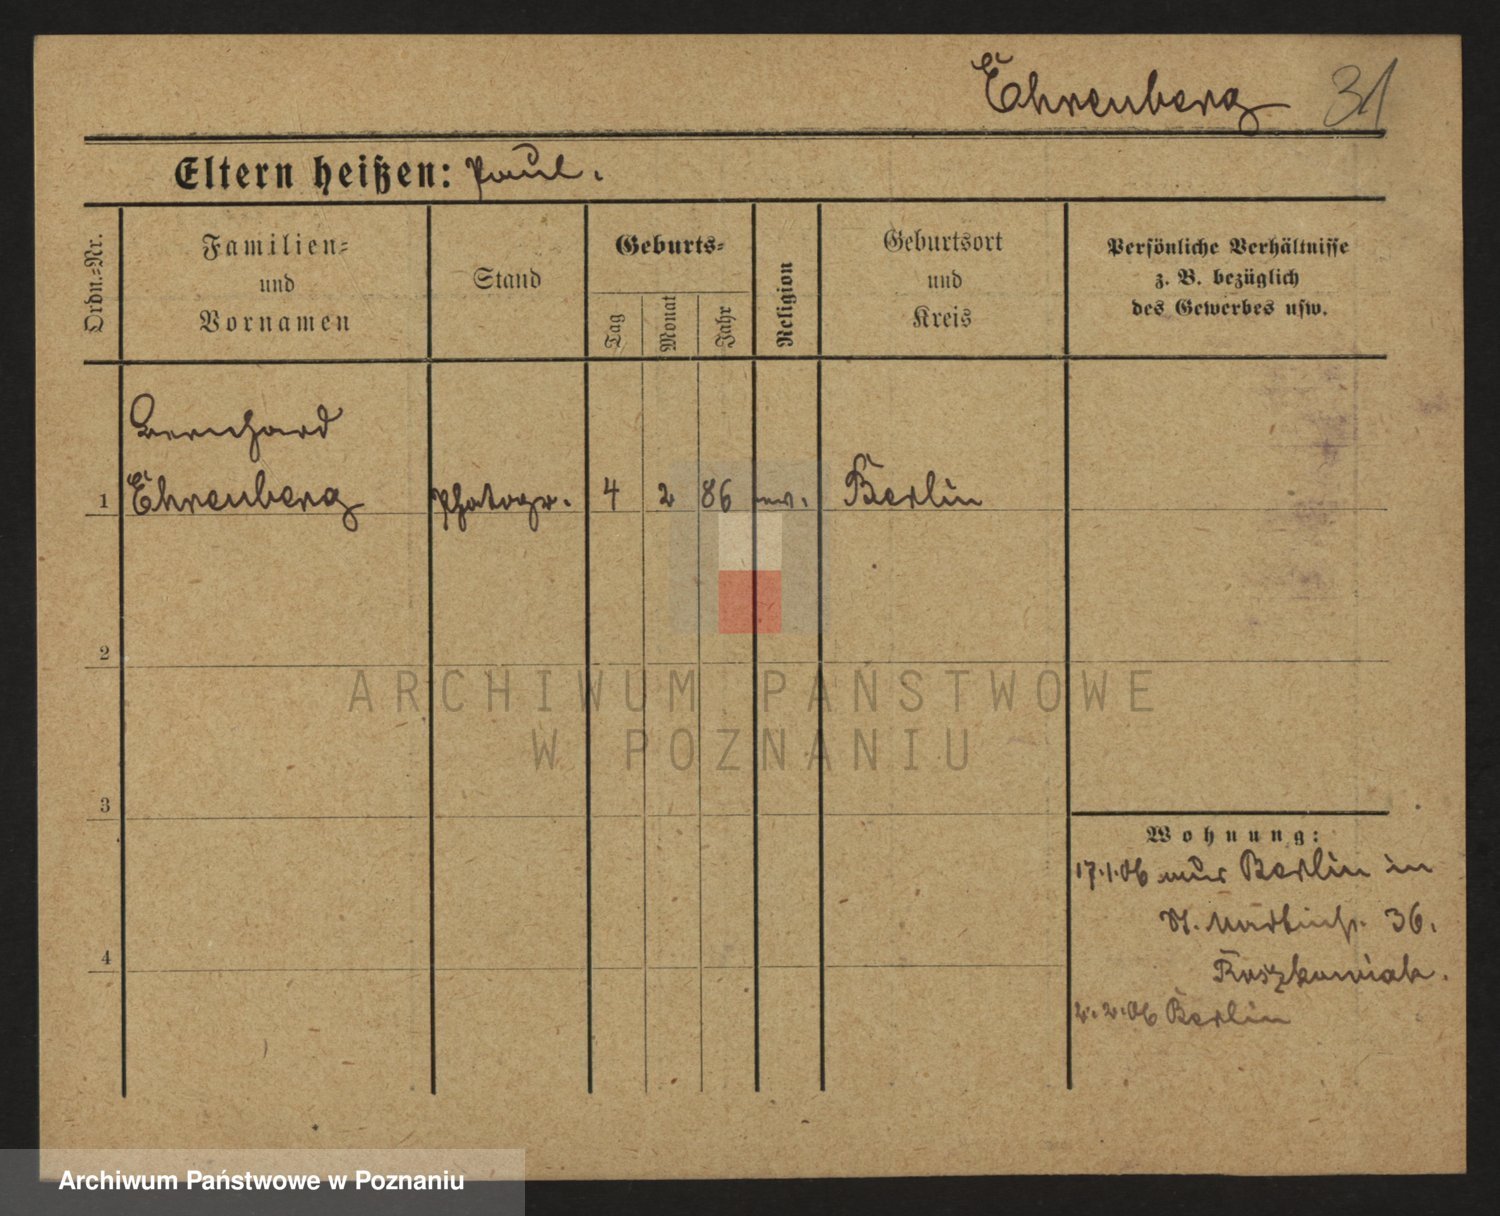 Ehrenberg 31
Eltern heißen: Paul.
Ordn.-Nr.
Familien-
und
Vornamen
Stand
Geburts-
Tag
Monat
Jahr
Religion
Geburtsort
und
Kreis
Persönliche Verhältnisse
z. B. bezüglich
des Gewerbes usw.
Bernhard
1 Ehrenberg Photogr. 4 2 86 ev. Berlin
2
3
4
Wohnung:
17.1.06 aus Berlin in
St. Martinstr. 36.
Roszkowiak.
2.2.06 Berlin
ARCHIWUM PAŃSTWOWE
W POZNANIU
Archiwum Państwowe w Poznaniu